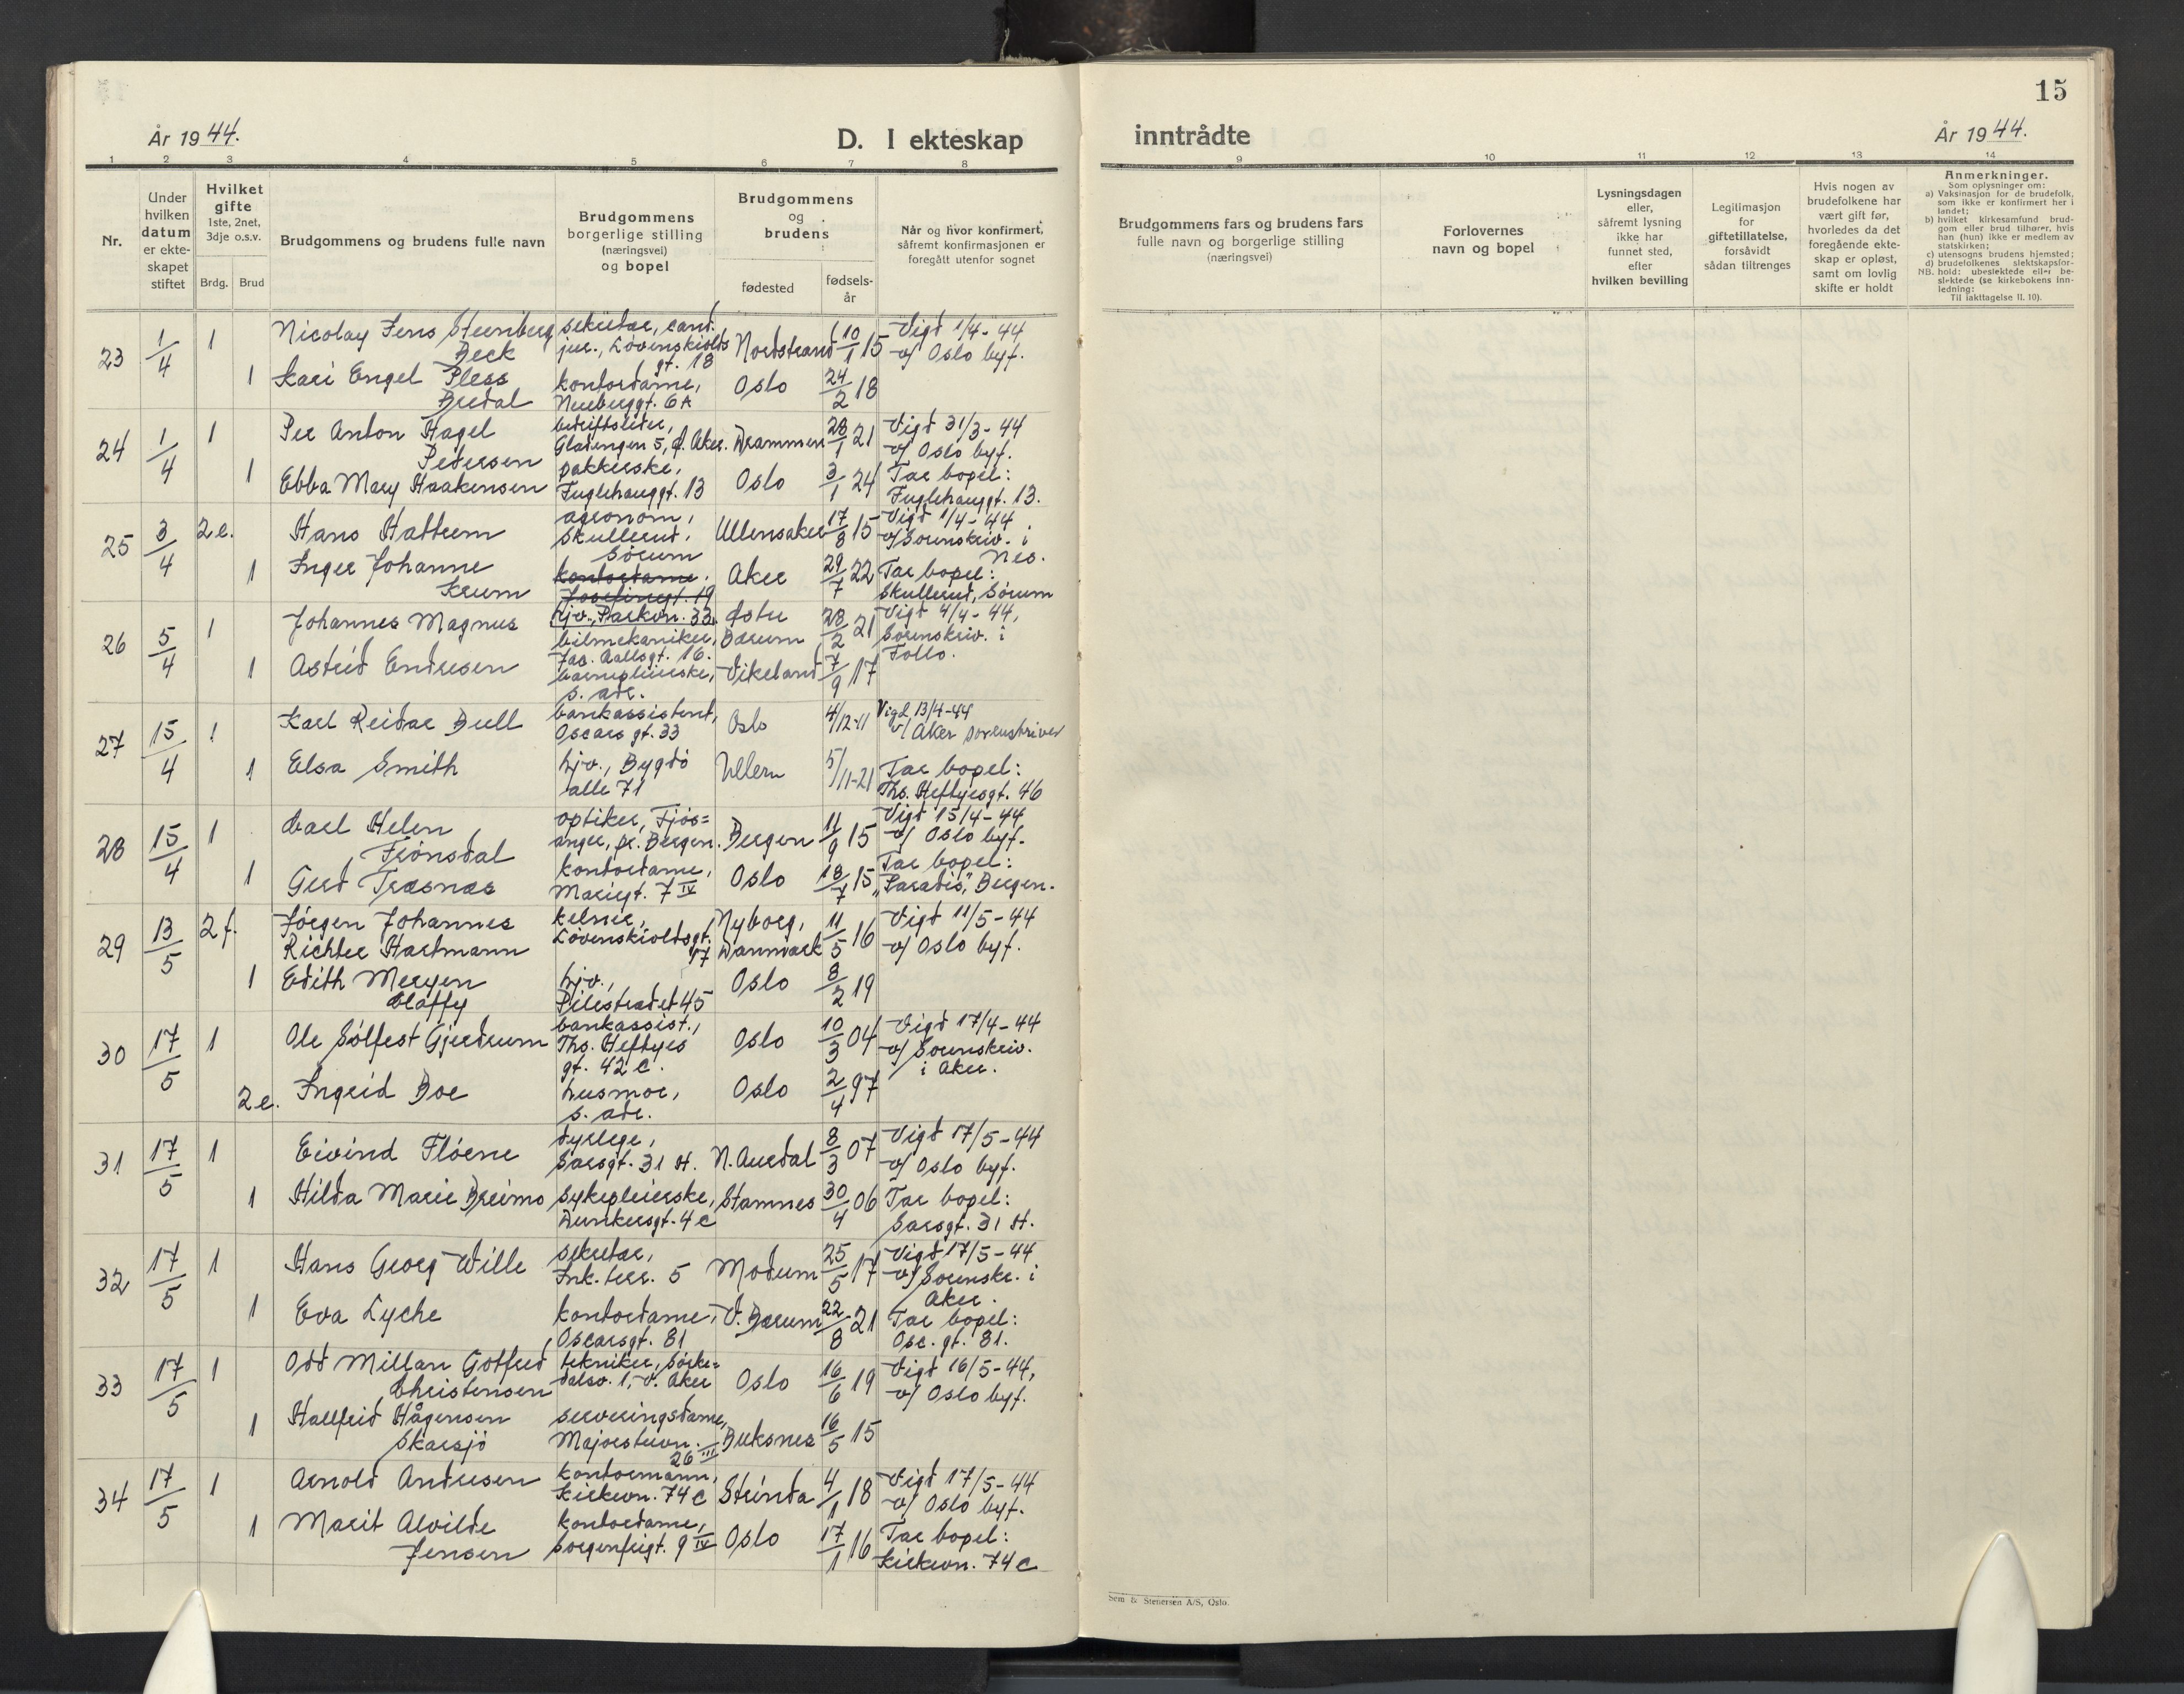 15
År 1944.
D. I ekteskap
inntrådte
År 1944.
1 2 3 4 5 6 7 8
9 10 11 12 13 14
Nr.
Under
hvilken
datum
er ekte-
skapet
stiftet
Hvilket
gifte
1ste, 2net,
3dje o.s.v.
Brdg. Brud
Brudgommens og brudens fulle navn
Brudgommens
borgerlige stilling
(næringsvei)
og bopel
Brudgommens
og
brudens
fødested
fødsels-
år
Når og hvor konfirmert,
såfremt konfirmasjonen er
foregått utenfor sognet
Brudgommens fars og brudens fars
fulle navn og borgerlige stilling
(næringsvei)
Forlovernes
navn og bopel
Lysningsdagen
eller,
såfremt lysning
ikke har
funnet sted,
efter
hvilken bevilling
Legitimasjon
for
giftetillatelse,
forsåvidt
sådan tiltrenges
Hvis nogen av
brudefolkene har
vært gift før,
hvorledes da det
foregående ekte-
skap er opløst,
samt om lovlig
skifte er holdt
Anmerkninger.
Som oplysninger om:
a) Vaksinasjon for de brudefolk,
som ikke er konfirmert her i
landet;
b) hvilket kirkesamfund brud-
gom eller brud tilhører, hvis
han (hun) ikke er medlem av
statskirken;
c) utensogns brudens hjemsted;
d) brudefolkenes slektskapsfor-
NB. hold: ubeslektede eller be-
slektede (se kirkebokens inn-
ledning:
Til iakttagelse II. 10).
23 1/4 1 Nicolay Jens Steenberg
Beck
sekretær, cand.
jur., Løvenskiolds
gt. 18
Nordstrand 10/1 15
Vigd 1/4-44
v/ Oslo byf.
1 Kari Engel Pless
Bredal
kontordame,
Neuberggt. 6A
Oslo 24/2 18
24 1/4 1 Per Anton Hagel
Pedersen
bedriftsleder,
Gladengen 5, Ø. Aker.
Drammen 28/1 21
Vigd 31/3-44
v/ Oslo byf.
1 Ebba Mary Haakensen
pakkerske,
Fuglehauggt. 13
Oslo 3/1 24
Tar bopel:
Fuglehauggt. 13.
25 3/4 2e. Hans Hattrem
agronom,
Skullerud,
Sørum
Ullensaker 17/8 15
Vigd 1/4-44
v/Sorenskriv. i
Nes.
1 Inger Johanne
Krum
kontordame.
Josefinegt. 19
Aker 29/7 22
Tar bopel:
Skullerud, Sørum
26 5/4 1 Johannes Magnus
hjv., Parkvn. 33.
bilmekaniker,
Jac. Aallsgt. 16.
Østre
Bærum
28/2 21
Vigd 4/4-44,
Sorenskriv. i
Follo.
1 Astrid Endresen
barnepleierske,
s. adr.
Vikeland 7/9 17
27 15/4 1 Karl Reidar Bull
bankassistent,
Oscars gt. 33
Oslo 4/12-11
Vigd 13/4-44
v/ Aker sorenskriver
1 Elsa Smith
hjv., Bygdø
alle 71
Ullern 5/11-21
Tar bopel:
Ths. Heftyesgt. 46
28 15/4 1 Carl Helen
Frønsdal
optiker, Fjøs=
anger, pr. Bergen.
Bergen 11/9 15
Vigd 15/4-44
v/ Oslo byf.
1 Gerd Træsnæs
kontordame,
Mariegt. 7 IV
Oslo 18/7 15
Tar bopel:
"Paradis", Bergen.
29 13/5 2f. Jørgen Johannes
Richter Hartmann
kelner,
Løvenskioldsgt.
17
Nyborg,
Danmark
11/5 16
Vigd 11/5-44
v/ Oslo byf.
1 Edith Meryen
Claffy
hjv.,
Pilestrædet 45
Oslo 8/2 19
30 17/5 1 Ole Sølfest Gjerdrum
bankassist.,
Ths. Heftyes
gt. 42 c.
Oslo 10/3 04
Vigd 17/4-44
v/ Sorenskriv.
i Aker.
2e. Ingrid Boe
husmor,
s. adr.
Oslo 2/4 97
31 17/5 1 Eivind Fløene
dyrlege,
Sarsgt. 31 st.
N. Aurdal 8/3 07
Vigd 17/5-44
v/ Oslo byf.
1 Hilda Marie Breimo
sykepleierske,
Dunkersgt. 4 c
Stamnes 30/4 06
Tar bopel:
Sarsgt. 31 st.
32 17/5 1 Hans Georg Wille
sekretær,
Ink. terr. 5
Modum 25/5 17
Vigd 17/5-44
v/ Sorenskr. i
Aker.
1 Eva Lyche
kontordame,
Oscarsgt. 81
V. Bærum 22/8 21
Tar bopel:
Osc. gt. 81.
33 17/5 1 Odd Millan Gotfred
Christensen
tekniker, Sørke=
dalsv. 1, V. Aker
Oslo 16/6 19
Vigd 16/5-44,
v/ Oslo byf.
1 Hallfrid Hågensen
Skarsjö
serveringsdame,
Majorstuvn.
26 III
Buksnes 16/5 15
34 17/5 1 Arnold Andresen
kontormann,
Kirkevn. 74 c
Strinda 4/1 18
Vigd 17/5-44
v/ Oslo byf.
1 Marit Alvilde
Jensen
kontordame,
Sorgenfrigt. 9 IV
Oslo 17/1 16
Tar bopel:
Kirkevn. 74 c
Sem & Stenersen A/S, Oslo.